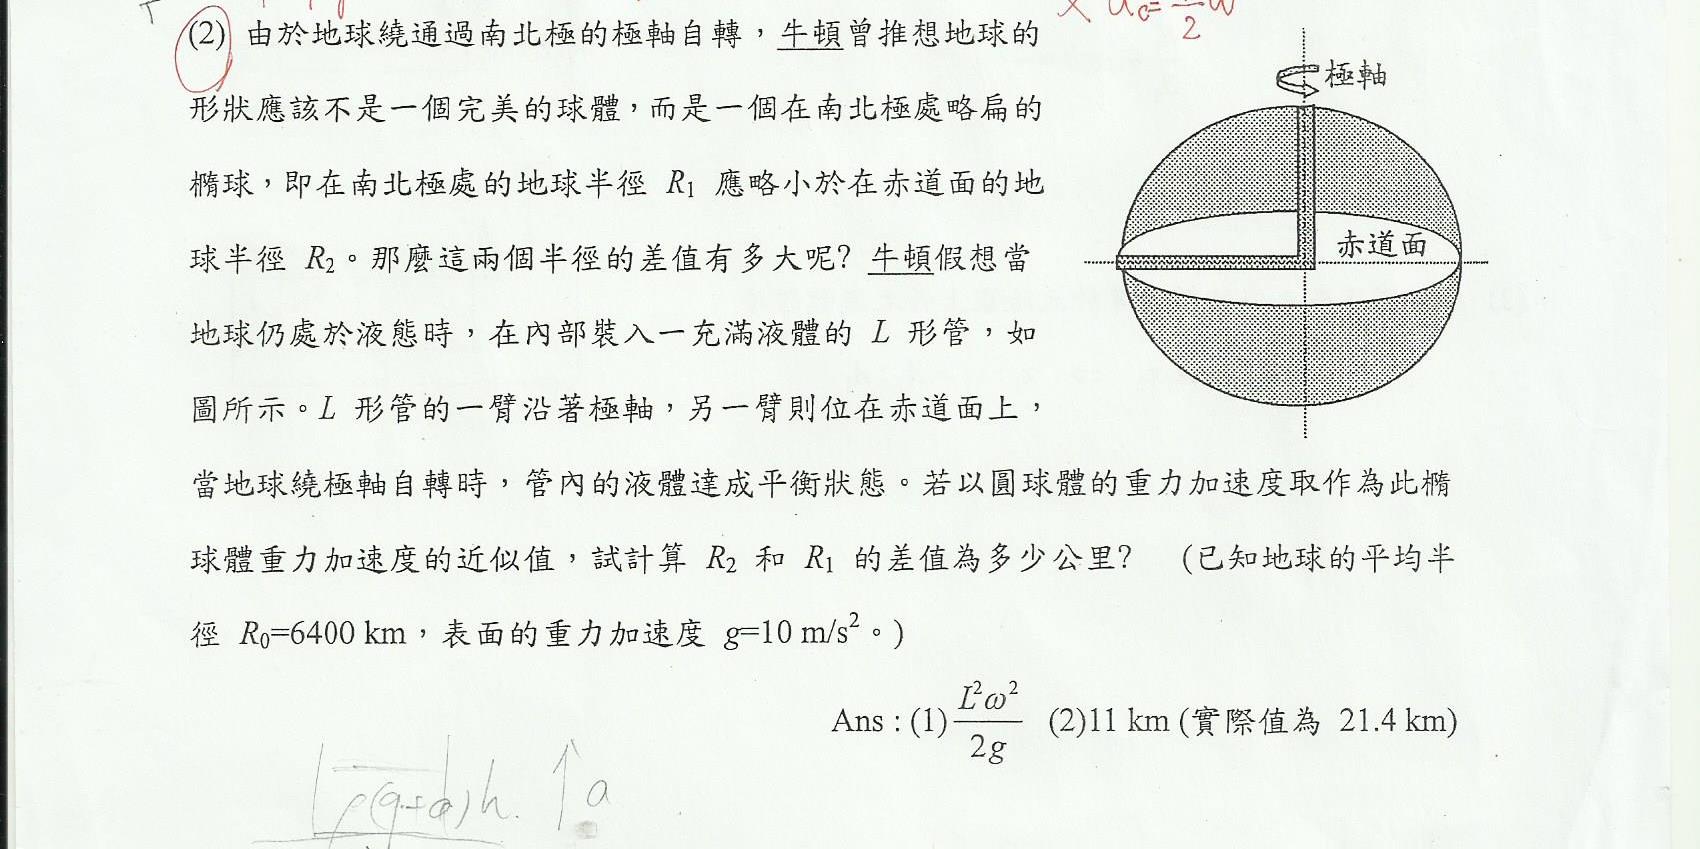 × a_c = ω
2
(2) 由於地球繞通過南北極的極軸自轉，牛頓曾推想地球的
形狀應該不是一個完美的球體，而是一個在南北極處略扁的
橢球，即在南北極處的地球半徑 R₁ 應略小於在赤道面的地
球半徑 R₂。那麼這兩個半徑的差值有多大呢？牛頓假想當
地球仍處於液態時，在內部裝入一充滿液體的 L 形管，如
圖所示。L 形管的一臂沿著極軸，另一臂則位在赤道面上，
極軸
赤道面
當地球繞極軸自轉時，管內的液體達成平衡狀態。若以圓球體的重力加速度取作為此橢
球體重力加速度的近似值，試計算 R₂ 和 R₁ 的差值為多少公里？ (已知地球的平均半
徑 R₀=6400 km，表面的重力加速度 g=10 m/s²。)
Ans : (1) L²ω²/2g (2)11 km (實際值為 21.4 km)
ρ(g+a)h. ↑a